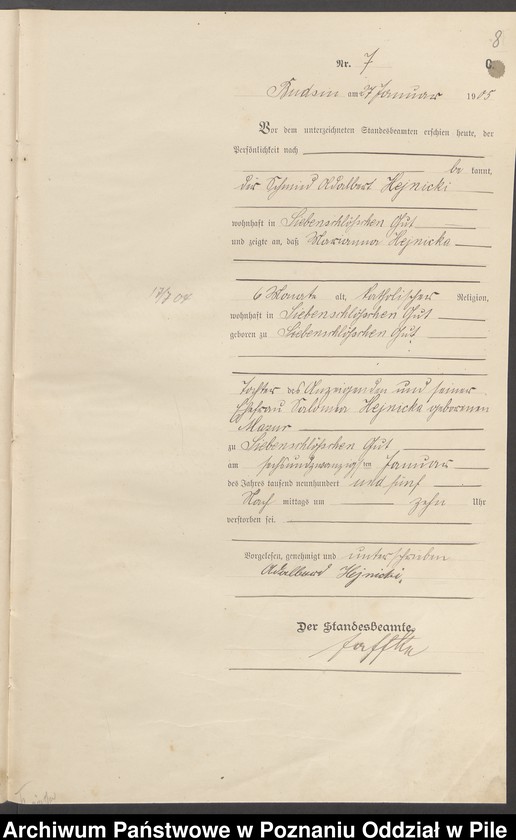 8
Nr. 7
C.
Budsin am 27 Januar 1905
Vor dem unterzeichneten Standesbeamten erschien heute, der
Persönlichkeit nach
be kannt,
der Schmied Adalbert Hejnicki
wohnhaft in Siebenschlößchen Gut
und zeigte an, daß Marianna Hejnicka
13/7 04
6 Monate alt, katholischer Religion,
wohnhaft in Siebenschlößchen Gut
geboren zu Siebenschlößchen Gut
Tochter des Anzeigenden und seiner
Ehefrau Salomea Hejnicka geborenen
Mazur
zu Siebenschlößchen Gut
am sechsundzwanzigsten Januar
des Jahres tausend neunhundert und fünf
Nach mittags um zehn Uhr
verstorben sei.
Vorgelesen, genehmigt und unterschrieben
Adalbert Hejnicki.
Der Standesbeamte.
Archiwum Państwowe w Poznaniu Oddział w Pile